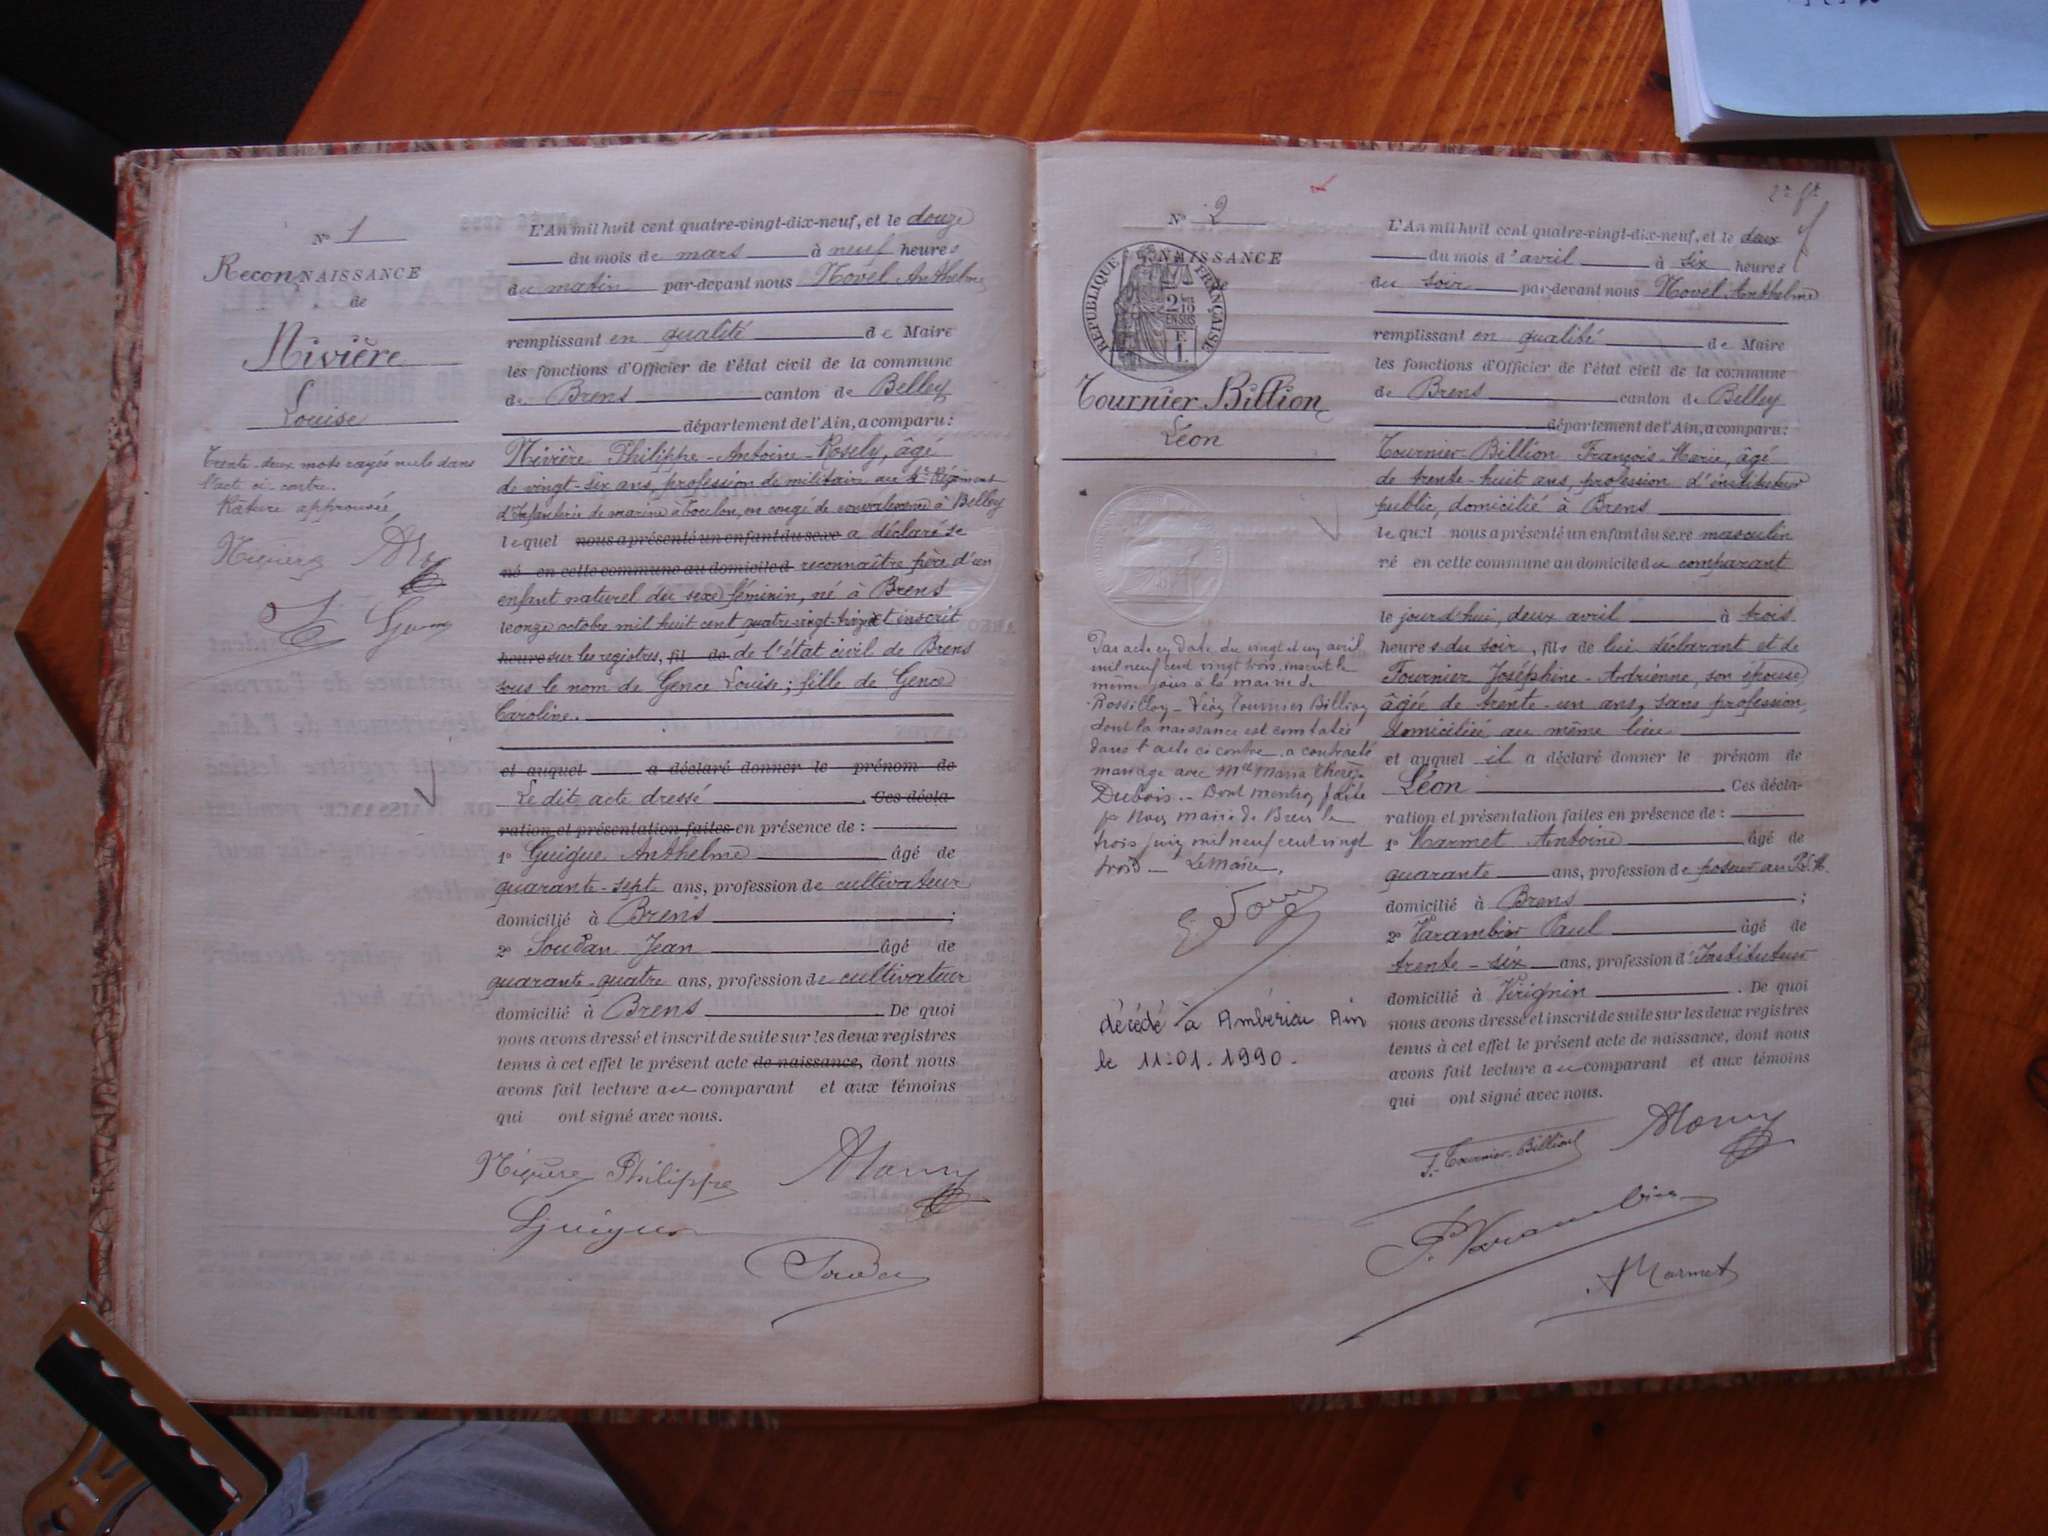 N° 1
ReconNAISSANCE
de
Nivière
Louise
Trente-deux mots rayés nuls dans
l'act ci-contre.
Rature approuvée
L'An mil huit cent quatre-vingt-dix-neuf, et le douze
du mois de mars à neuf heures
du matin par-devant nous Novel Anthelme
remplissant en qualité de Maire
les fonctions d'Officier de l'état civil de la commune
de Brens canton de Belley
département de l'Ain, a comparu:
Nivière Philippe-Antoine-Rosely, âgé
de vingt-six ans, profession de militaire au 4e Régiment
d'Infanterie de marine à Toulon, en congé de convalescence à Belley
lequel nous a présenté un enfant du sexe a déclaré se
né en cette commune au domicile d reconnaître père d'un
enfant naturel du sexe féminin, né à Brens
le onze octobre mil huit cent quatre-vingt- et inscrit
heure sur les registres, fil de de l'état civil de Brens
sous le nom de Gence Louise; fille de Gence
Caroline.
et auquel a déclaré donner le prénom de
Le dit acte dressé . Ces décla-
ration et présentation faites en présence de :
1° Guigue Anthelme âgé de
quarante-sept ans, profession de cultivateur
domicilié à Brens ;
2° Soudan Jean âgé de
quarante-quatre ans, profession de cultivateur
domicilié à Brens . De quoi
nous avons dressé et inscrit de suite sur les deux registres
tenus à cet effet le présent acte de naissance, dont nous
avons fait lecture au comparant et aux témoins
qui ont signé avec nous.
Nivière Philippe
Guigue
N° 2
NAISSANCE
RÉPUBLIQUE FRANÇAISE
2 10
EN SUS
E
1
Tournier Billion
Léon
Par acte en date du vingt et un avril
mil neuf cent vingt trois, inscrit le
même jour à la mairie de
Rossillon - Léon Tournier Billion
dont la naissance est constatée
dans l'acte ci contre, a contracté
mariage avec Mlle Maria Thérèse
Dubois. - Dont mention faite
pr Nous maire de Brens le
trois juin mil neuf cent vingt
trois - Le Maire,
décédé à Ambérieu Ain
le 11-01-1990.
L'An mil huit cent quatre-vingt-dix-neuf, et le deux
du mois d'avril à six heures
du soir par-devant nous Novel Anthelme
remplissant en qualité de Maire
les fonctions d'Officier de l'état civil de la commune
de Brens canton de Belley
département de l'Ain, a comparu:
Tournier-Billion François-Marie, âgé
de trente-huit ans, profession d'instituteur
public, domicilié à Brens
lequel nous a présenté un enfant du sexe masculin
né en cette commune au domicile du comparant
le jourd'hui, deux avril à trois
heures du soir, fils de lui déclarant et de
Fournier Joséphine-Adrienne, son épouse
âgée de trente-un ans, sans profession,
domiciliée au même lieu
et auquel il a déclaré donner le prénom de
Léon . Ces décla-
ration et présentation faites en présence de :
1° Marmet Antoine âgé de
quarante ans, profession de poseur au
domicilié à Brens ;
2° Varambier Paul âgé de
trente-six ans, profession d'Instituteur
domicilié à Virignin . De quoi
nous avons dressé et inscrit de suite sur les deux registres
tenus à cet effet le présent acte de naissance, dont nous
avons fait lecture au comparant et aux témoins
qui ont signé avec nous.
F. Tournier-Billion
P. Varambier
A Marmet